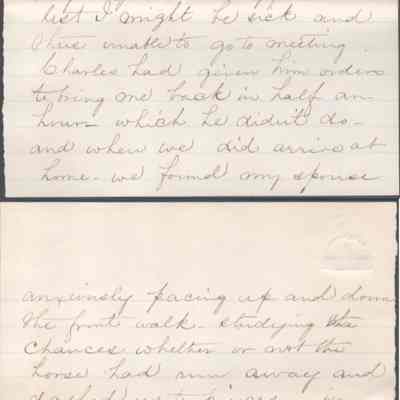 lest I might be sick and
thus unable to go to meeting.
Charles had given him orders
to bring me back in half an
hour which he didn't do-
and when we did arrive at
home- we found my spouse
anxiously pacing up and down
the front walk- studying the
chances whether or not the
horse had run away and
dashed us to pieces